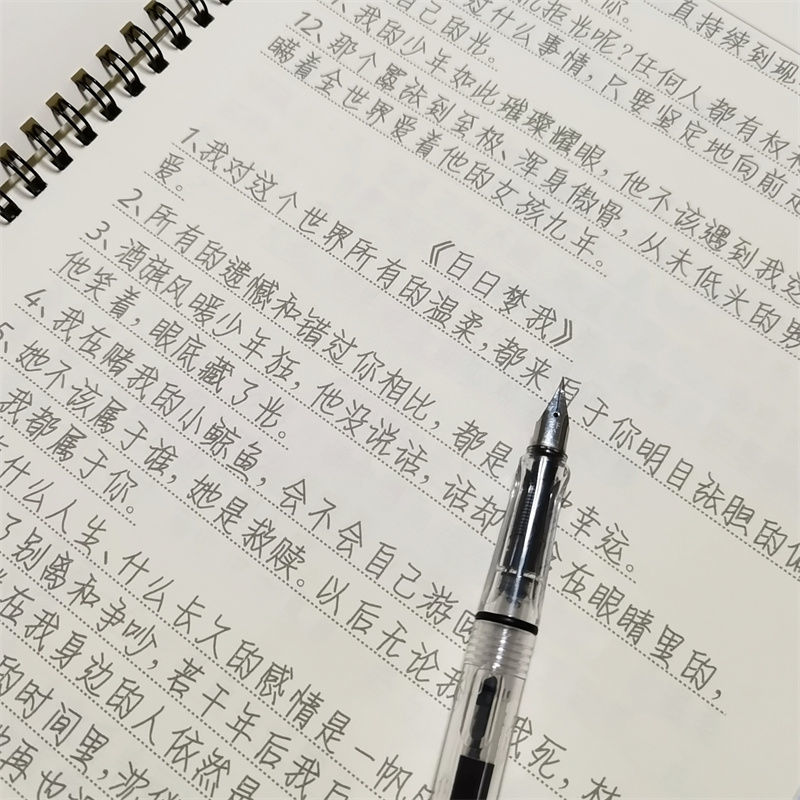 你。
直持续到那
自己的光。
拒光呢?任何人都有权利
对什么事情,只要坚定地向前走
、我的少年如此璀璨耀眼,他不该遇到我这
12、那个嚣张到至极、浑身傲骨,从未低头的男
瞒着全世界爱着他的女孩九年。
《白日梦我》
1、我对这个世界所有的温柔,都来 于你明目张胆的偏
爱。
2、所有的遗憾和错过你相比,都是 幸运。
3、酒旗风暖少年狂,他没说话,话却 在眼睛里的,
他笑着,眼底藏了光。
4、我在赌我的小鲸鱼,会不会自己游回
5、她不该属于谁,她是救赎。以后无论我 我死,
我都属于你。
什么人生、什么长久的感情是一帆
了别离和争吵,若干年后我
在我身边的人依然是
的时间里,沈
再也